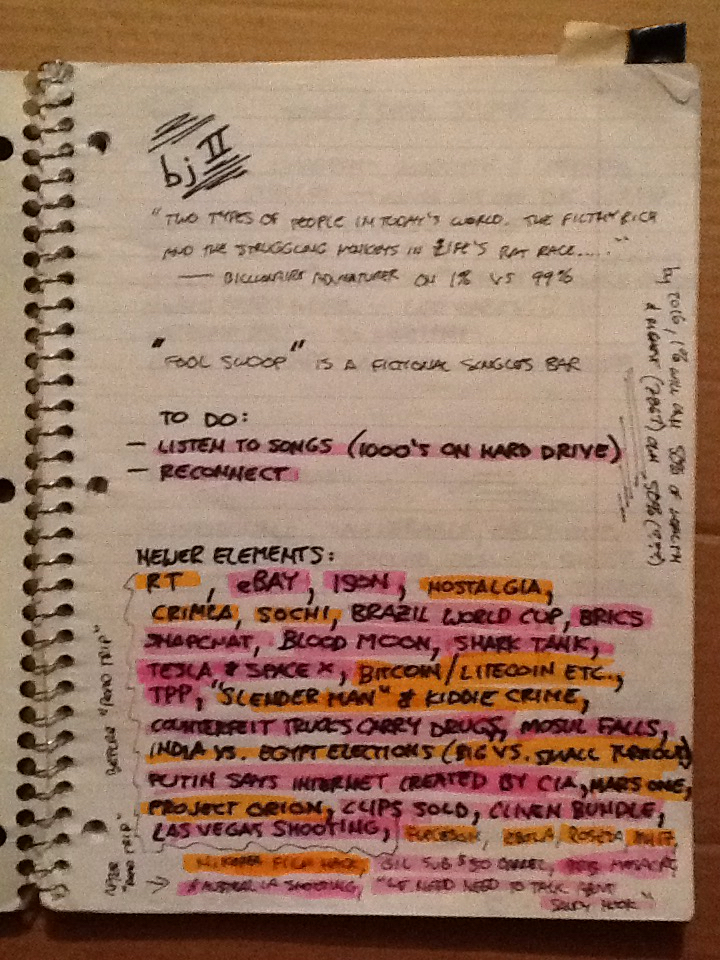 bj II
"TWO TYPES OF PEOPLE IN TODAY'S WORLD. THE FILTHY RICH
AND THE STRUGGLING MONKEYS IN LIFE'S RAT RACE....."
— BILLIONAIRE ADVENTURER ON 1% VS 99%
"FOOL SWOOP" IS A FICTIONAL SINGLES BAR
TO DO:
— LISTEN TO SONGS (1000'S ON HARD DRIVE)
— RECONNECT
NEWER ELEMENTS:
RT, eBAY, ISON, NOSTALGIA,
CRIMEA, SOCHI, BRAZIL WORLD CUP, BRICS
SNAPCHAT, BLOOD MOON, SHARK TANK,
TESLA & SPACE X, BITCOIN/LITECOIN ETC.,
TPP, "SLENDER MAN" & KIDDIE CRIME,
COUNTERFEIT TRUCKS CARRY DRUGS, MOSUL FALLS,
INDIA VS. EGYPT ELECTIONS (BIG VS. SMALL TURNOUT)
PUTIN SAYS INTERNET CREATED BY CIA, MARS ONE,
PROJECT ORION, CLIPS SOLD, CLIVEN BUNDLE,
LAS VEGAS SHOOTING, EBOLA, ROSETTA
FILM HACK, OIL SUB $50 BARREL, MASSACRE
& AUSTRALIA SHOOTING, "WE NEED NEED TO TALK ABOUT
SANDY HOOK"
BEFORE "ROAD TRIP"
AFTER "ROAD TRIP"
by 2016, 1% WILL OWN 50% OF WEALTH